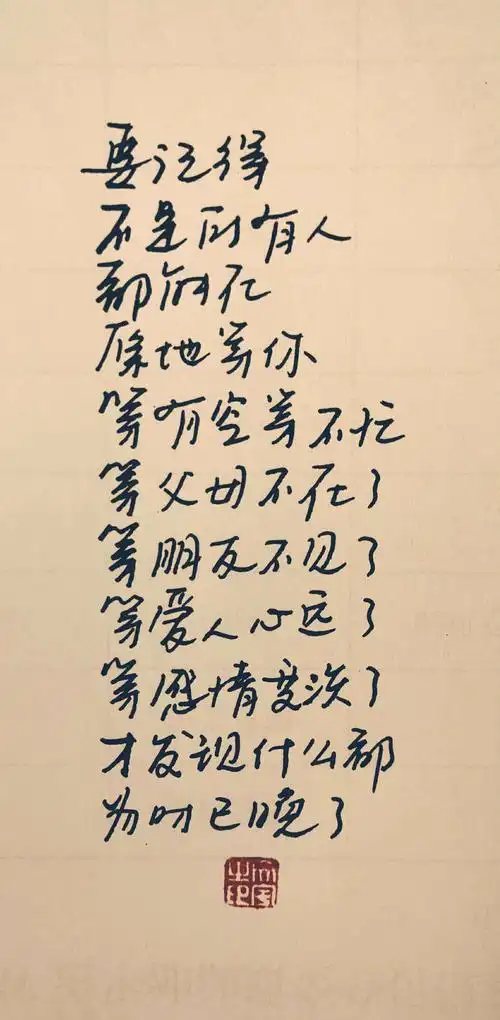 要记得
不是所有人
都会在
原地等你
等有空等不忙
等父母不在了
等朋友不见了
等爱人心远了
等感情变淡了
才发现什么都
为时已晚了